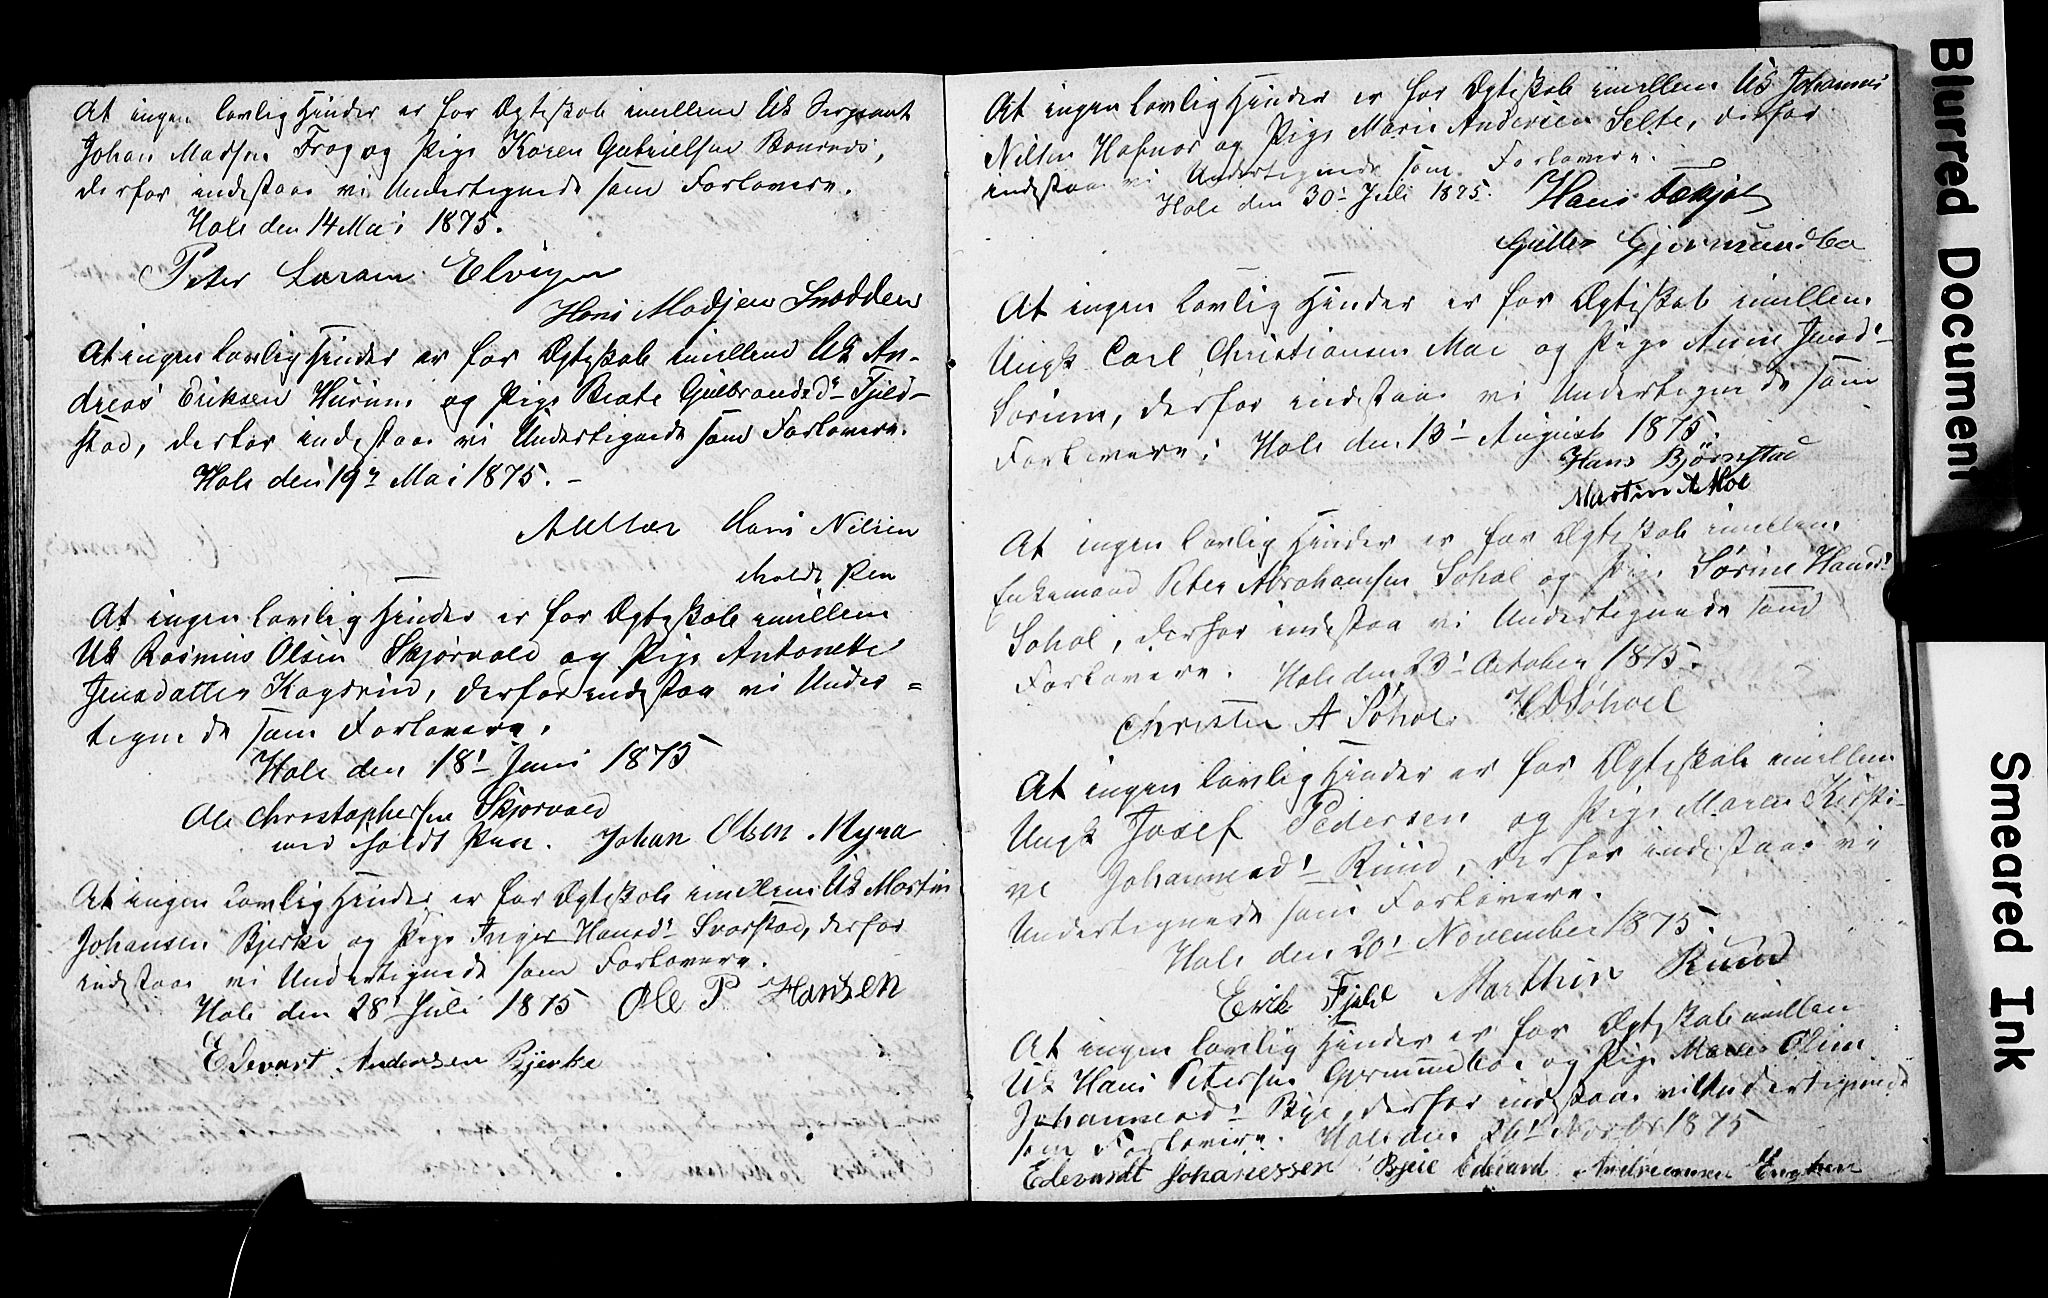 At ingen lovlig Hinder er for Ægteskab imellem Uk Sergeant
Johan Madsen Frog og Pige Karen Gabrielsen
derfor indestaae vi Undertegnede som Forlovere.
Hole den 14 Mai 1875.
Peter Elvigen
Hans Madsen
At ingen lovlig Hinder er for Ægteskab imellem Uk An-
dreas Eriksen Hurum og Pige Beate Gulbrandsd- Fjeld-
stad, derfor indestaae vi Undertegnede som Forlovere.
Hole den 19 Mai 1875.
Hans Nilsen
holdt Pen
At ingen lovlig Hinder er for Ægteskab imellem
Uk Rasmus Olsen Skjørvold og Pige Antonette
Jensdatter Kagsrud, derfor indestaae vi Under=
tegnede som Forlovere.
Hole den 18' Juni 1875
Ole Christophersen Skjørvold
med holdt Pen. Johan Olsen
At ingen lovlig Hinder er for Ægteskab imellem Uk Martin
Johansen Bjerke og Pige Inger Hansd' Svarstad, derfor
indestaae vi Undertegnede som Forlovere.
Hole den 28' Juli 1875 Ole P Hansen
Edevart Andersen Bjerke
At ingen lovlig Hinder er for Ægteskab imellem Uk Johannes
Nilsen Hafnor og Pige Maria Andersen Selte, derfor
indestaae vi Undertegnede som Forlovere.
Hole den 30' Juli 1875. Hans
Gulbr Gjermundbo
At ingen lovlig Hinder er for Ægteskab imellem
Ungk Carl Christiansen Moe og Pige Anne Jensd'-
Sørum, derfor indestaae vi Undertegnede som
Forlovere; Hole den 13' August 1875.
Hans Bjørnstad
Martin A Moe
At ingen lovlig Hinder er for Ægteskab imellem
Enkemand Peter Abrahamsen Søhol og Pige Sørine Hansd'
Søhol, derfor indestaae vi Undertegnede som
Forlovere. Hole den 23' October 1875.
Christen A Søhol H Søhoel
At ingen lovlig Hinder er for Ægteskab imellem
Ungk Josef Pedersen og Pige Maren Kirsti-
ne Johannesd' Ruud, derfor indestaae vi
Undertegnede som Forlovere.
Hole den 20' November 1875.
Erik Fjeld Marthin Ruud
At ingen lovlig Hinder er for Ægteskab imellem
Uk Hans Petersen Gjermundbo og Pige Maren Oline
Johannesd' Bye, derfor indestaae vi Undertegnede
som Forlovere. Hole den 26' Novbr 1875
Edevardt Johanessen Bjue Edevard Andreassen Enghen
Blurred Document
Smeared Ink